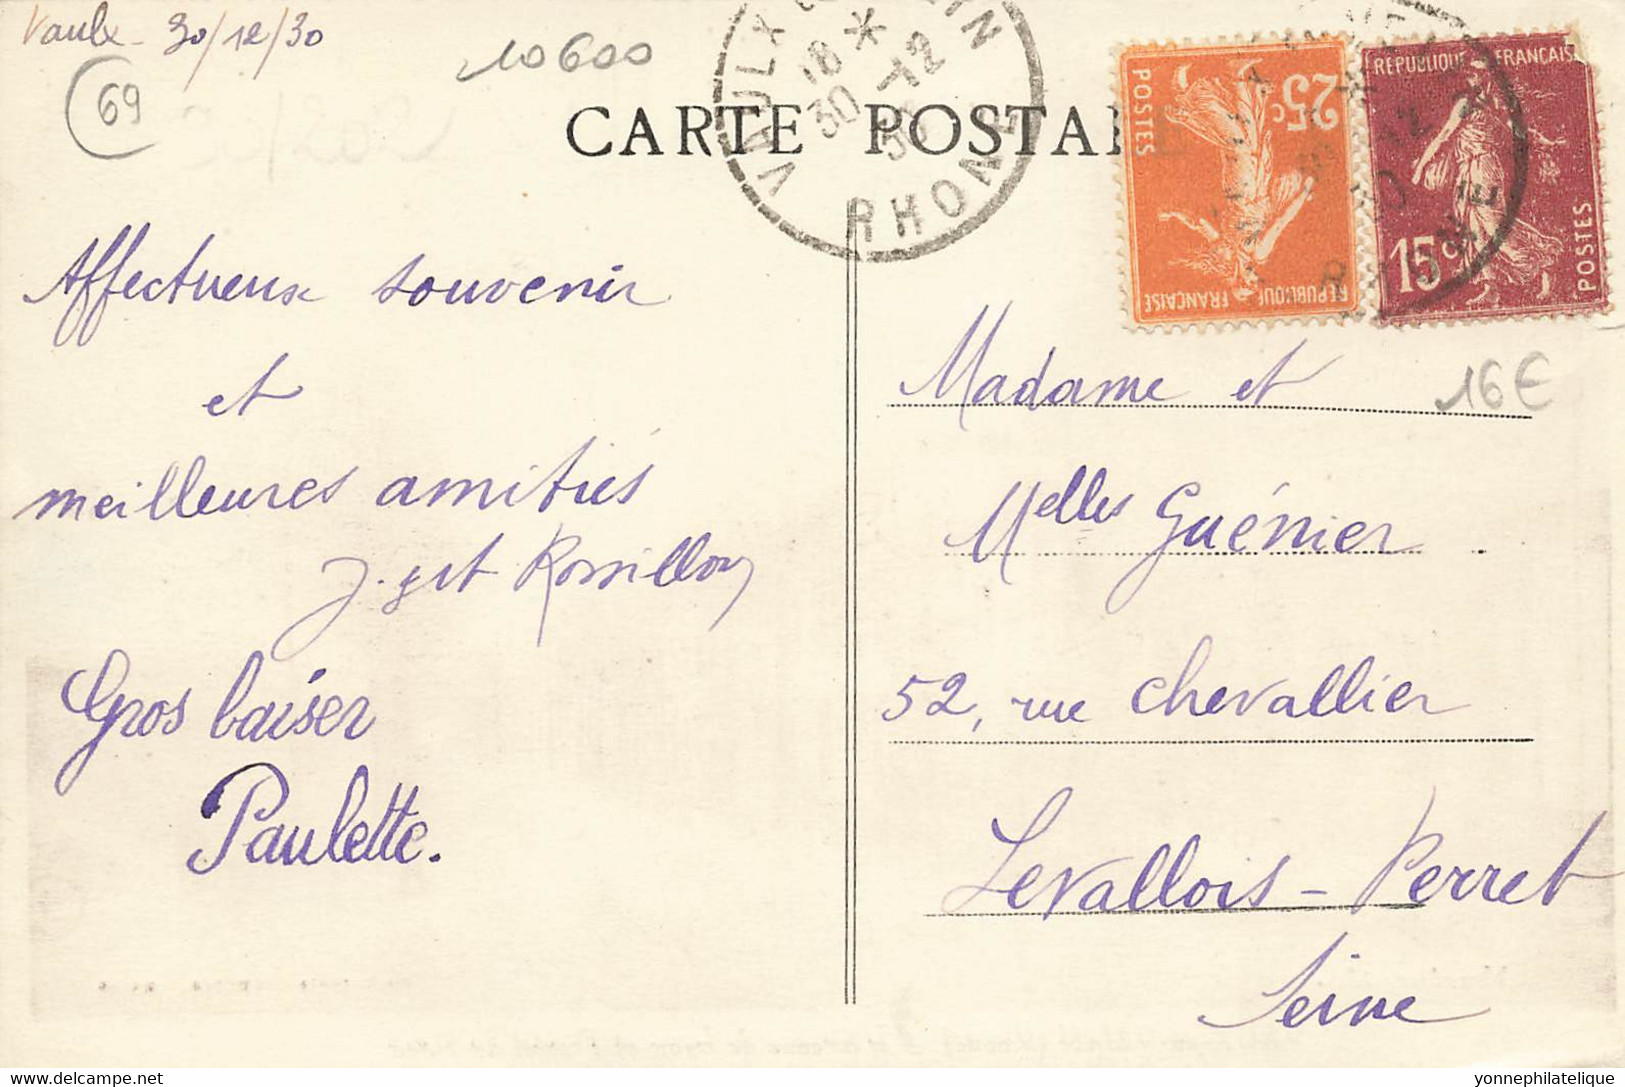 Vaulx - 30/12/30
69
10600
CARTE POSTALE
VAULX EN VELIN
18 *
30 - 12
30
RHONE
25c
POSTES
REPUBLIQUE FRANÇAISE
REPUBLIQUE FRANÇAISE
15c
POSTES
16€
Affectueux souvenir
et
meilleures amitiés
J. et Rossillon
Gros baiser
Paulette.
Madame et
Melles Guénier
52, rue Chevallier
Levallois-Perret
Seine
yonnephilatelie.com